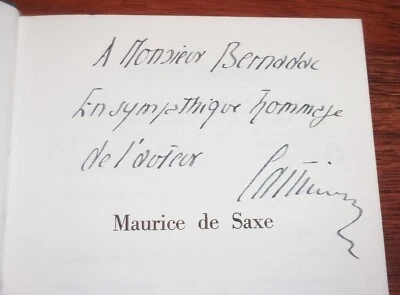 A Monsieur Bernadac
En sympathique hommage
de l'auteur
Maurice de Saxe